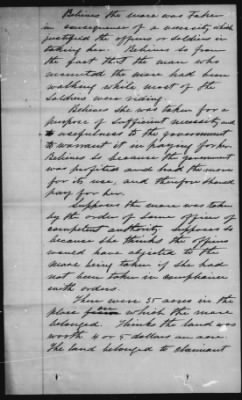 Believes the mare was taken
in consequence of a necessity which
justified the officers or soldiers in
taking her. Believes so from
the fact that the man who
mounted the mare had been
walking while most of the
soldiers were riding.
Believes she was taken for a
purpose of sufficient necessity and
usefulness to the government
to warrant it in paying for her.
Believes so because the government
was profited and had the mare
for its use, and therefore should
pay for her.
Supposes the mare was taken
by the order of some officer of
competent authority supposes so
because she thinks the officers
would have objected to the
mare being taken if she had
not been taken in compliance
with orders.
There were 35 acres in the
place from which the mare
belonged. Thinks the land was
worth 4 or 5 dollars an acre.
The land belonged to claimant